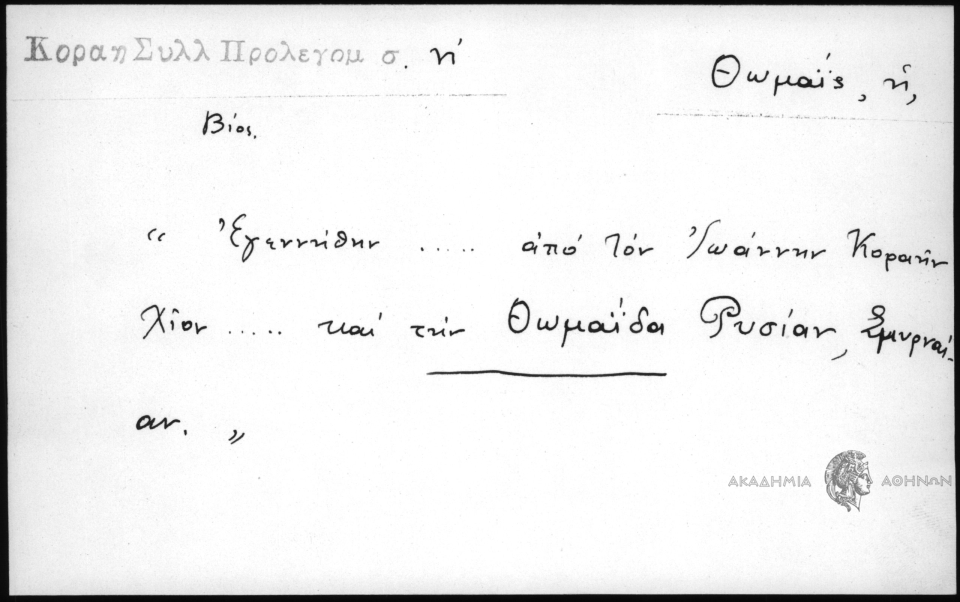 Κοραη Συλλ Προλεγομ σ. νί
Θωμαΐς, ἡ,
Βίος.
“ Ἐγεννήθην ..... ἀπό τόν Ἰωάννην Κοραῆν
Χῖον ..... καί τήν Θωμαΐδα Ρυσίαν, Σμυρναί-
αν. „
ΑΚΑΔΗΜΙΑ ΑΘΗΝΩΝ